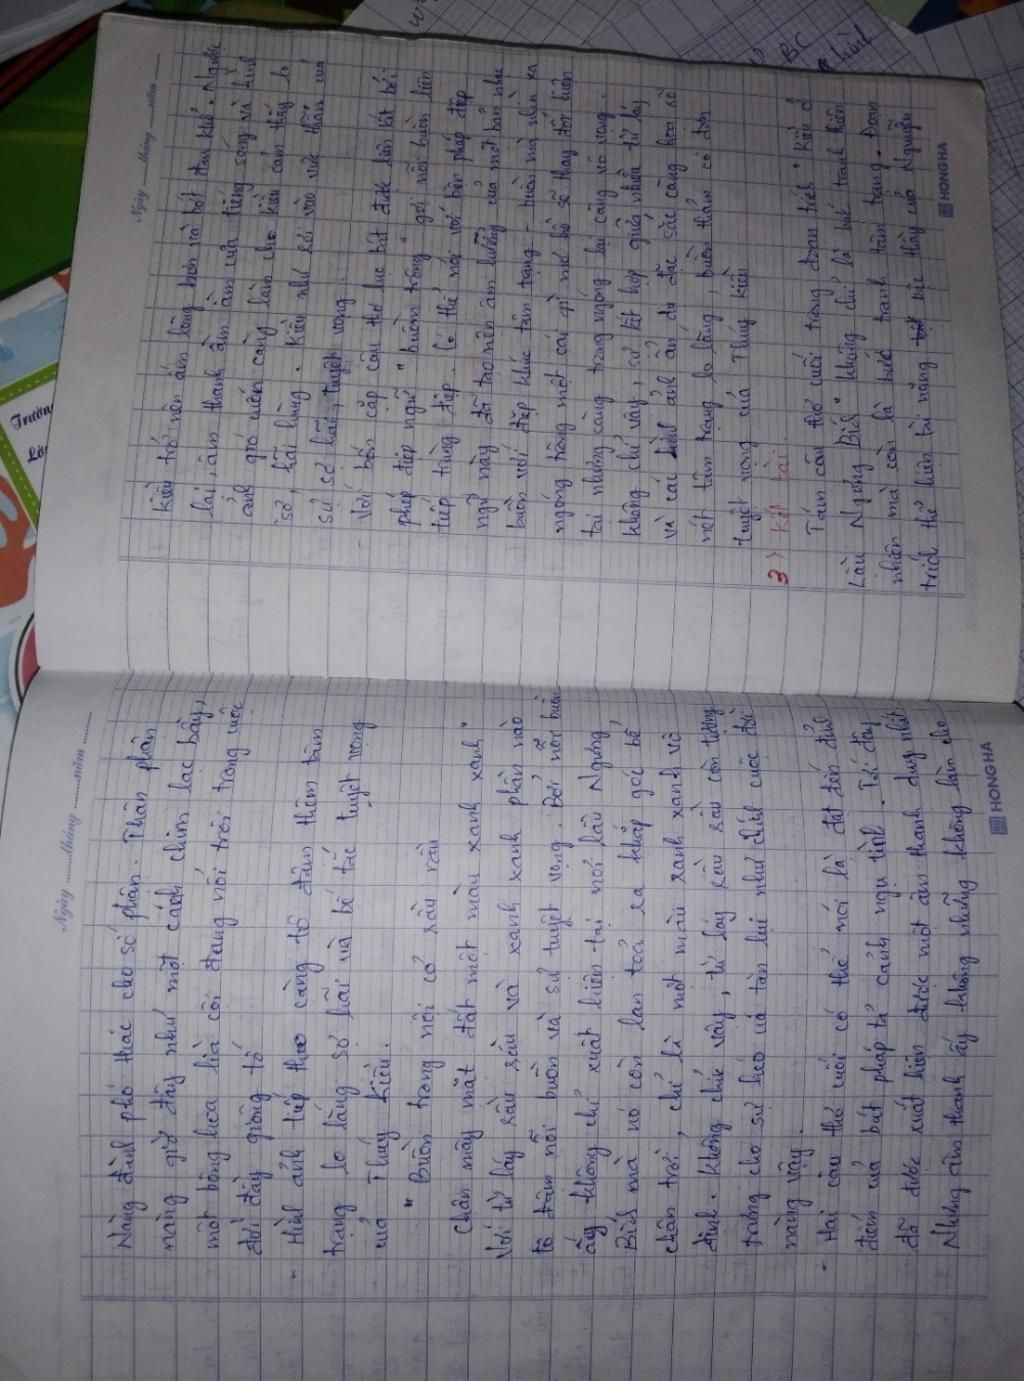 Ngày ........ tháng ........ năm ........
Nàng đành phó thác cho số phận. Thân phận
nàng giờ đây như một cánh chim lạc bầy,
một bông hoa lìa cội đang nổi trôi trong cuộc
đời đầy giông tố
- Hình ảnh tiếp theo càng tô đậm thêm tâm
trạng lo lắng sợ hãi và bế tắc tuyệt vọng
của Thuý Kiều.
" Buồn trông nội cỏ rầu rầu
Chân mây mặt đất một màu xanh xanh "
Với từ láy rầu rầu và xanh xanh phần nào
tô đậm nỗi buồn và sự tuyệt vọng. Bởi nỗi buồn
ấy không chỉ xuất hiện tại nơi lầu Ngưng
Bích mà nó còn lan toả ra khắp góc bể
chân trời, chỉ là một màu xanh xanh vô
định. Không chỉ vậy, từ láy rầu rầu còn tượng
trưng cho sự héo úa tàn lụi như chính cuộc đời
nàng vậy.
- Hai câu thơ cuối có thể nói là đạt đến đỉnh
điểm của bút pháp tả cảnh ngụ tình. Tới đây
đã được xuất hiện được một âm thanh duy nhất
Nhưng âm thanh ấy không những không làm cho
HONG HA
Ngày ........ tháng ........ năm ........
Kiều trở nên ấm lòng hơn và bớt đau khổ. Ngược
lại, âm thanh ầm ầm của tiếng sóng và hình
ảnh gió cuốn càng làm cho Kiều cảm thấy lo
sợ, hãi hùng. Kiều như rơi vào vực thẳm của
sự sợ hãi, tuyệt vọng.
- Với bốn cặp câu thơ lục bát được diễn tả bởi
phép điệp ngữ " buồn trông " gợi nỗi buồn liên
tiếp trùng điệp. Có thể nói với biện pháp điệp
ngữ này đã tạo nên âm hưởng của một bản nhạc
buồn với điệp khúc tâm trạng - buồn mà nhìn xa
ngóng trông một cái gì mơ hồ sẽ thay đổi hiện
tại nhưng càng trông ngóng lại càng vô vọng.
Không chỉ vậy, sự kết hợp giữa nhiều từ láy
và các hình ảnh ẩn dụ đặc sắc càng họa rõ
nét tâm trạng lo lắng, buồn thảm cô đơn
tuyệt vọng của Thuý Kiều
3> Kết bài
Tám câu thơ cuối trong đoạn trích " Kiều ở
Lầu Ngưng Bích " không chỉ là bức tranh thiên
nhiên mà còn là bức tranh tâm trạng. Đoạn
trích thể hiện tài năng bậc thầy của Nguyễn
HONG HA
Trường
Lớp
BC